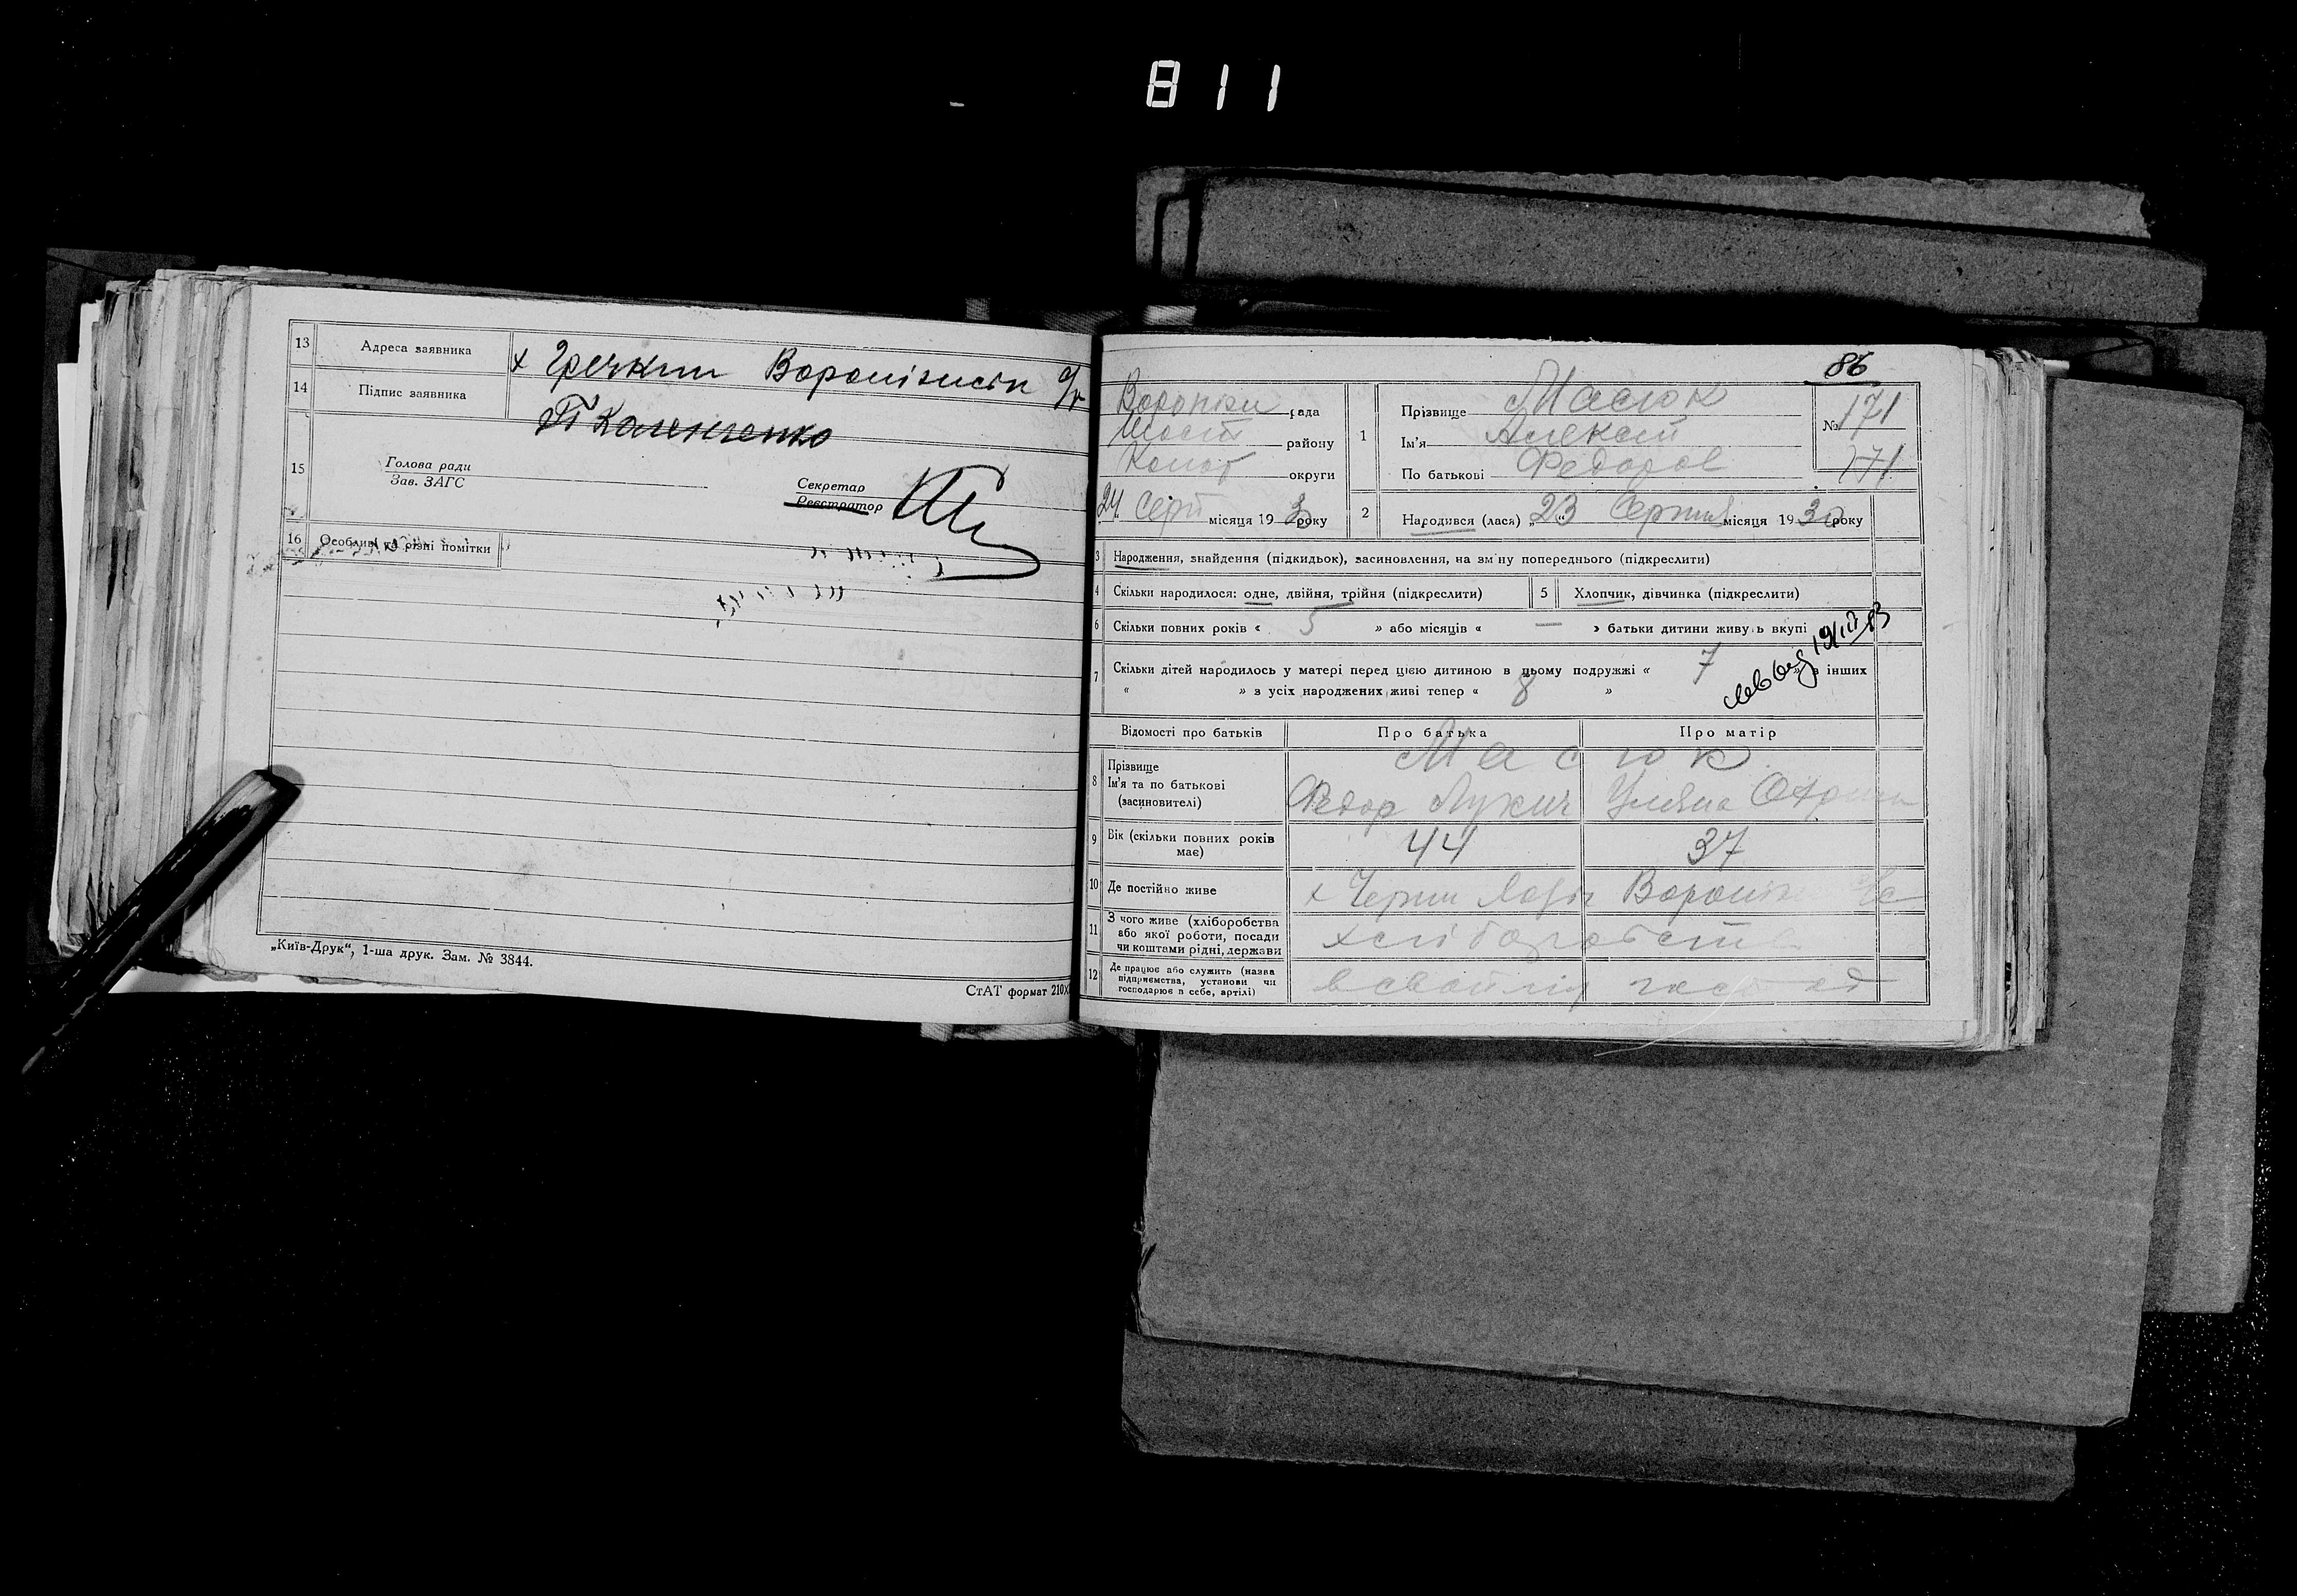 811
13 Адреса заявника х Гречкин Воропіжисък с/р
14 Підпис заявника
П Коленченко
15 Голова ради
Зав. ЗАГС
Секретар
Реєстратор
16 Особливі та різні помітки
„Київ-Друк“, 1-ша друк. Зам. № 3844.
СтАТ формат 210Х
86
рада
району
округи
24 Серп місяця 19 3 року
1 Прізвище Масюк
Ім'я Алексій
По батькові Федоров
№ 171
171
2 Народився (лася) „ 23 “ Серпня місяця 1930 року
3 Народження, знайдення (підкидьок), засиновлення, на зміну попереднього (підкреслити)
4 Скільки народилося: одне, двійня, трійня (підкреслити) 5 Хлопчик, дівчинка (підкреслити)
6 Скільки повних років « 5 » або місяців « — » батьки дитини живуть вкупі
7 Скільки дітей народилось у матері перед цією дитиною в цьому подружжі « 7 » в інших
« » з усіх народжених живі тепер « 8 »
Відомості про батьків Про батька Про матір
8 Прізвище
Ім'я та по батькові
(засиновителі)
Масюк
Федор Лукич Уляна
9 Вік (скільки повних років має) 44 37
10 Де постійно живе х
11 З чого живе (хліборобства або якої роботи, посади чи коштами рідні, держави хліборобств
12 Де працює або служить (назва підприємства, установи чи господарює в себе, артілі)